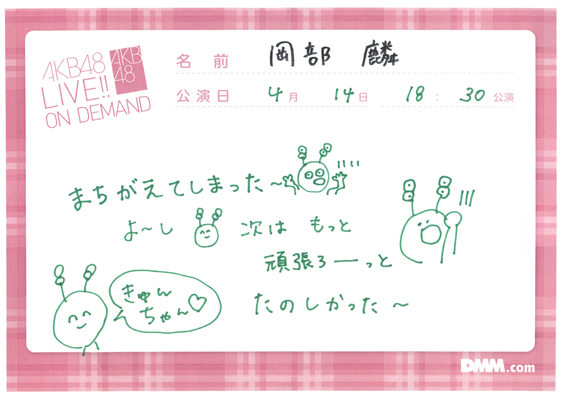 AKB48
LIVE!!
ON DEMAND
AKB
48
名前 岡部 麟
公演日 4月 14日 18:30公演
まちがえてしまった〜
よ〜し 次は もっと
頑張ろーっと
きゅん
ちゃん♡
たのしかった〜
DMM.com